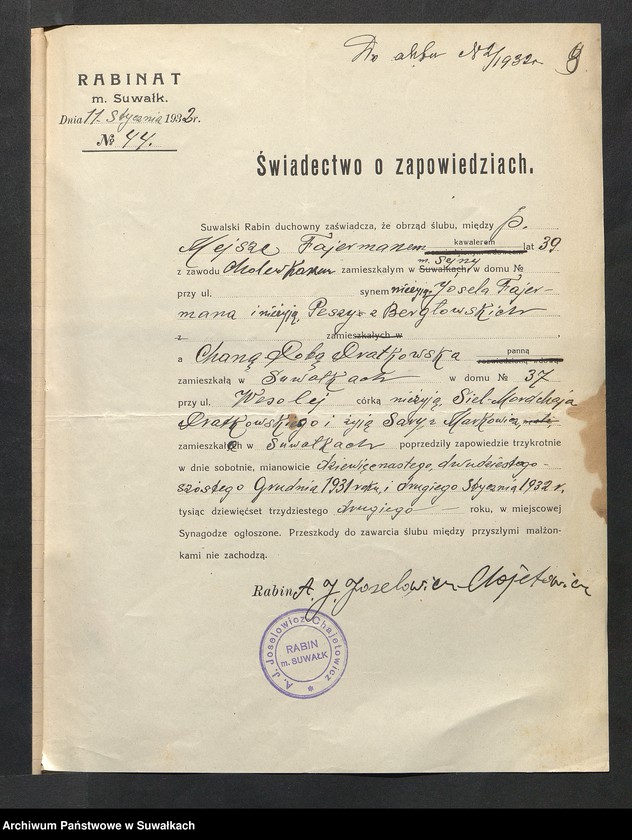 Do aktu № 2/1932 r. 9
RABINAT
m. Suwałk.
Dnia 11 Stycznia 1932 r.
№ 44.
Świadectwo o zapowiedziach.
Suwalski Rabin duchowny zaświadcza, że obrząd ślubu, między p.
Mejsze Fajermanem kawalerem lat 39
m. Sejny
z zawodu cholewkarzem zamieszkałym w Suwałkach, w domu №
przy ul. synem nieżyją. Josela Fajer-
mana i nieżyją. Peszy z Bergłowskich
z zamieszkałych w
a Chaną Dobą Dratkowska panną
zamieszkałą w Suwałkach w domu № 37
przy ul. Wesołej córką nieżyją. Siel-Mordchaja
Dratkowskiego i żyją Sary z Markowicz
zamieszkałych w Suwałkach poprzedziły zapowiedzie trzykrotnie
w dnie sobotnie, mianowicie dziewięcnastego, dwudziestego-
szóstego Grudnia 1931 roku, i drugiego Stycznia 1932 r.
tysiąc dziewięćset trzydziestego drugiego roku, w miejscowej
Synagodze ogłoszone. Przeszkody do zawarcia ślubu między przyszłymi małżon-
kami nie zachodzą.
Rabin A. J. Joselowicz-Chajetowicz
A. J. Joselowicz-Chajetowicz
RABIN
m. SUWAŁK
Archiwum Państwowe w Suwałkach